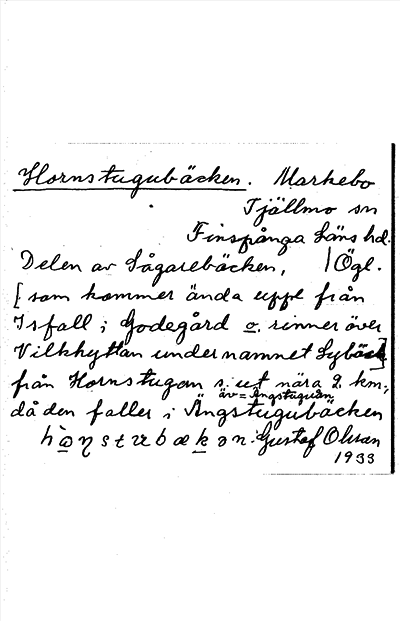 Hornstugubäcken. Markebo
Tjällmo sn
Finspånga läns hd.
Delen av Sågarebäcken, Ögl.
[som kommer ända uppe från
Isfall i Godegård o. rinner över
Vilkhyttan under namnet Sybäck]
från Hornstugan s. ut nära 2 km,
äv = Ängstuguån,
då den faller i Ängstugubäcken
Gustaf Olsson
1933